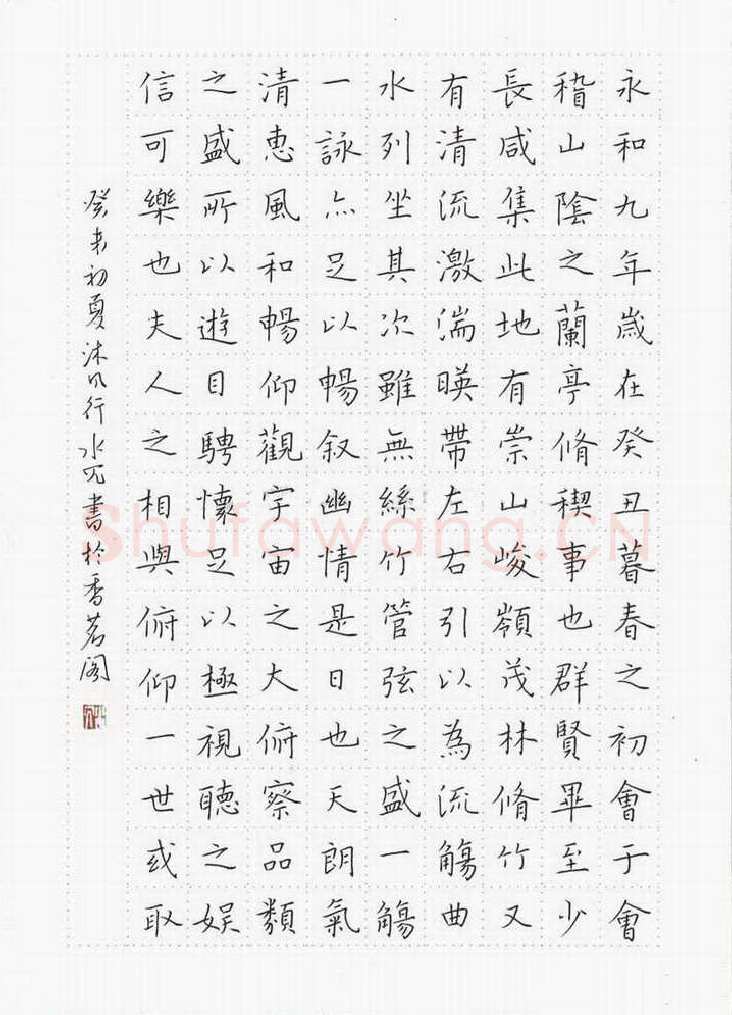 永和九年歲在癸丑暮春之初會于會
稽山陰之蘭亭脩稧事也群賢畢至少
長咸集此地有崇山峻嶺茂林脩竹又
有清流激湍暎帶左右引以為流觴曲
水列坐其次雖無絲竹管弦之盛一觴
一詠亦足以暢叙幽情是日也天朗氣
清惠風和暢仰觀宇宙之大俯察品類
之盛所以遊目騁懷足以極視聽之娛
信可樂也夫人之相與俯仰一世或取
癸未初夏沐风行水書於香茗阁
Shufawang.CN